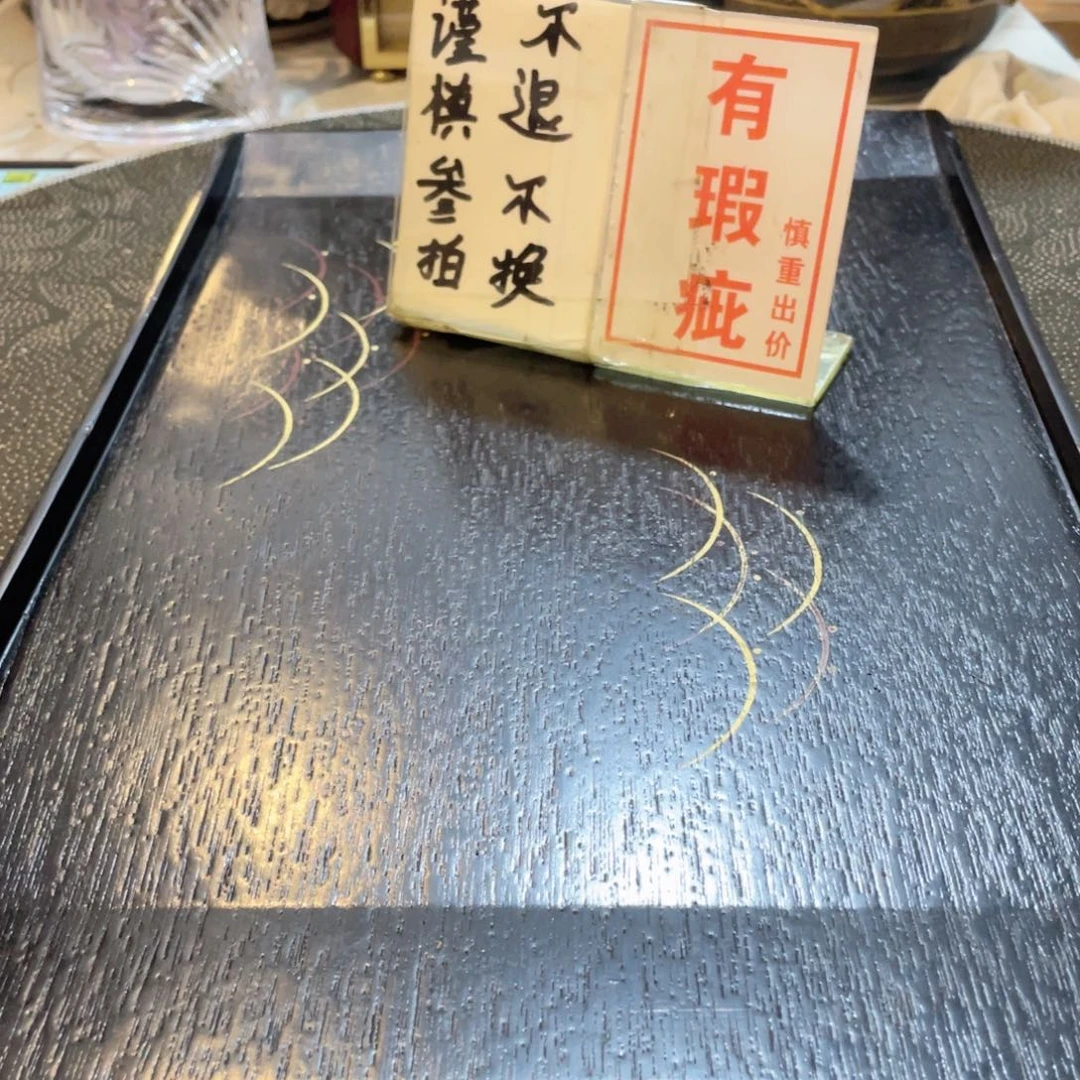 不退不换
谨慎参拍
有瑕疵
慎重出价